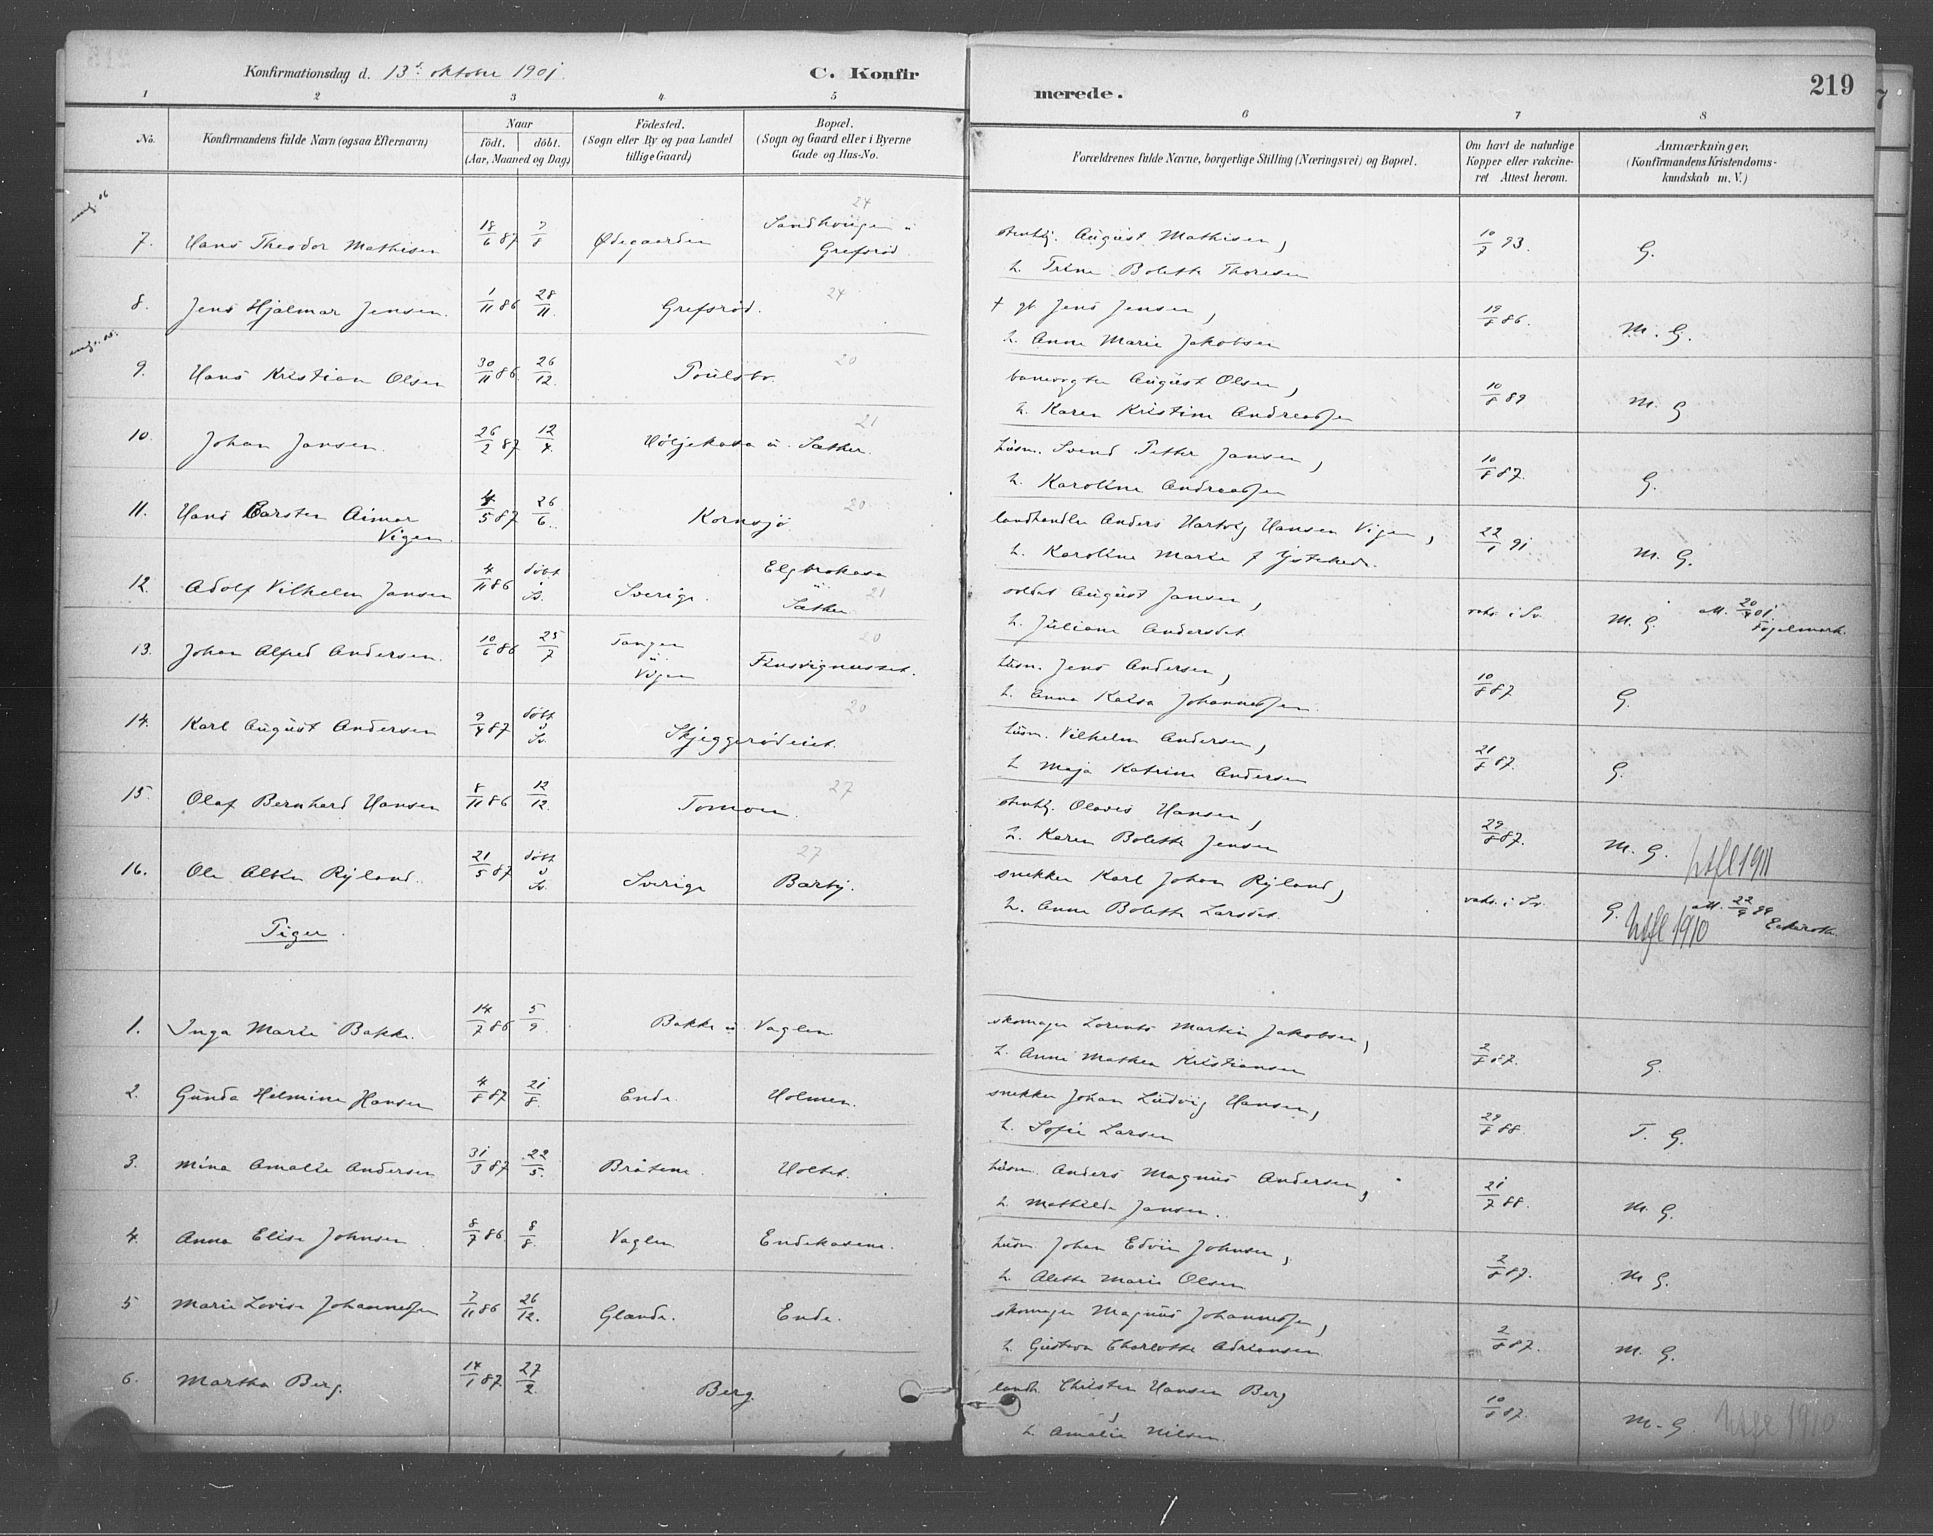 Konfirmationsdag d. 13de oktober 1901.
C. Konfir
merede.
219
1 2 3 4 5 6 7 8
No.
Konfirmandens fulde Navn (ogsaa Efternavn)
Naar
födt. döbt.
(Aar, Maaned og Dag)
Födested.
(Sogn eller By og paa Landet
tillige Gaard)
Bopæl.
(Sogn og Gaard eller i Byerne
Gade og Hus-No.
Forældrenes fulde Navne, borgerlige Stilling (Næringsvei) og Bopæl.
Om havt de naturlige
Kopper eller vakcine-
ret Attest herom.
Anmærkninger.
(Konfirmandens Kristendoms-
kundskab m. V.)
7. Hans Theodor Mathisen 18/6 87 7/8 Ødegaarden Sandhougen u Grefsrød 24
stenh. August Mathisen,
h. Trine Bolette Thoresen 10/7 93 G.
8. Jens Hjalmar Jensen. 1/11 86 28/11. Grefsrød. 24
† gb. Jens Jensen,
h. Anne Marie Jakobsen 19/8 86. M. G.
9. Hans Kristian Olsen 30/11 86. 26/12. Poulsbo. 20
banevogter August Olsen,
h. Karen Kristine Andreassen 10/8 89 M. G
10. Johan Jansen. 26/2 87 12/4. Höljekasa u. Sæther. 21
husm. Svend Petter Jansen,
h. Karoline Andreassen 10/8 87. G.
11. Hans Carsten Aimar
Vigen. 4/5 87 26/6. Kornsjø 20
landhandler Anders Hartvig Hansen Vigen,
h. Karoline Marie f. Ystehede. 22/1 91 M. G.
12. Adolf Vilhelm Jansen 4/11 86 döbt i Sv. Sverige. Elgbrokasa u Sæther 21
soldat August Jansen,
h. Juliane Andersdat. vaks. i Sv. M. G. att. 20/9 01 Fogelmark.
13. Johan Alfred Andersen. 10/6 86 25/7 Tangen u. Vigen Finsvigmusset. 20
husm. Jens Andersen,
h. Anna Kaisa Johannessen. 10/8 87 G.
14. Karl August Andersen 9/4 87 döbt i Sv. Skjeggerødeiet. 20
husm. Vilhelm Andersen,
h Maja Katrine Andersen 21/8 87. G.
15. Olaf Bernhard Hansen 8/11 86 12/12. Tomon. 27
stenh. Olaves Hansen,
h. Karen Bolette Jensen 29/8 87. M. G. Utfl 1911
16. Ole Albin Ryland. 21/5 87 döbt i Sv. Sverige Barby. 27
snekker Karl Johan Ryland,
h. Anne Bolette Larsdat. vaks. i Sv. G. att. 22/9 99 Utfl 1910
Piger.
1. Inga Marie Bakke. 14/7 86 5/9. Bakke u. Vaglen
skomager Lorents Martin Jakobsen,
h. Anne Mathea Kristiansen 2/8 87. G.
2. Gunda Helmine Hansen 4/8 87 21/8. Ende. Holmen.
snekker Johan Ludvig Hansen,
h. Sofie Larsen 29/8 88 T. G.
3. Mina Amalie Andersen 31/3 87 22/5. Bråtene. Holtet.
husm. Anders Magnus Andersen,
h. Mathilde Jansen. 21/7 88. M. G.
4. Anna Elise Johnsen 8/7 86. 8/8. Vaglen Endekasene.
husm. Johan Edvin Johnsen,
h. Alette Marie Olsen 2/8 87. M G.
5 Marie Lovise Johannessen 7/11 86 26/12. Glænde. Ende.
skomager Magnus Johannessen,
h. Gustava Charlotte Adriansen. 2/8 87. M. G.
6. Martha Berg. 14/1 87. 27/2. Berg
landh. Christen Hansen Berg,
h. Amalie Nilsen. 10/8 87. M. G Utfl 1910